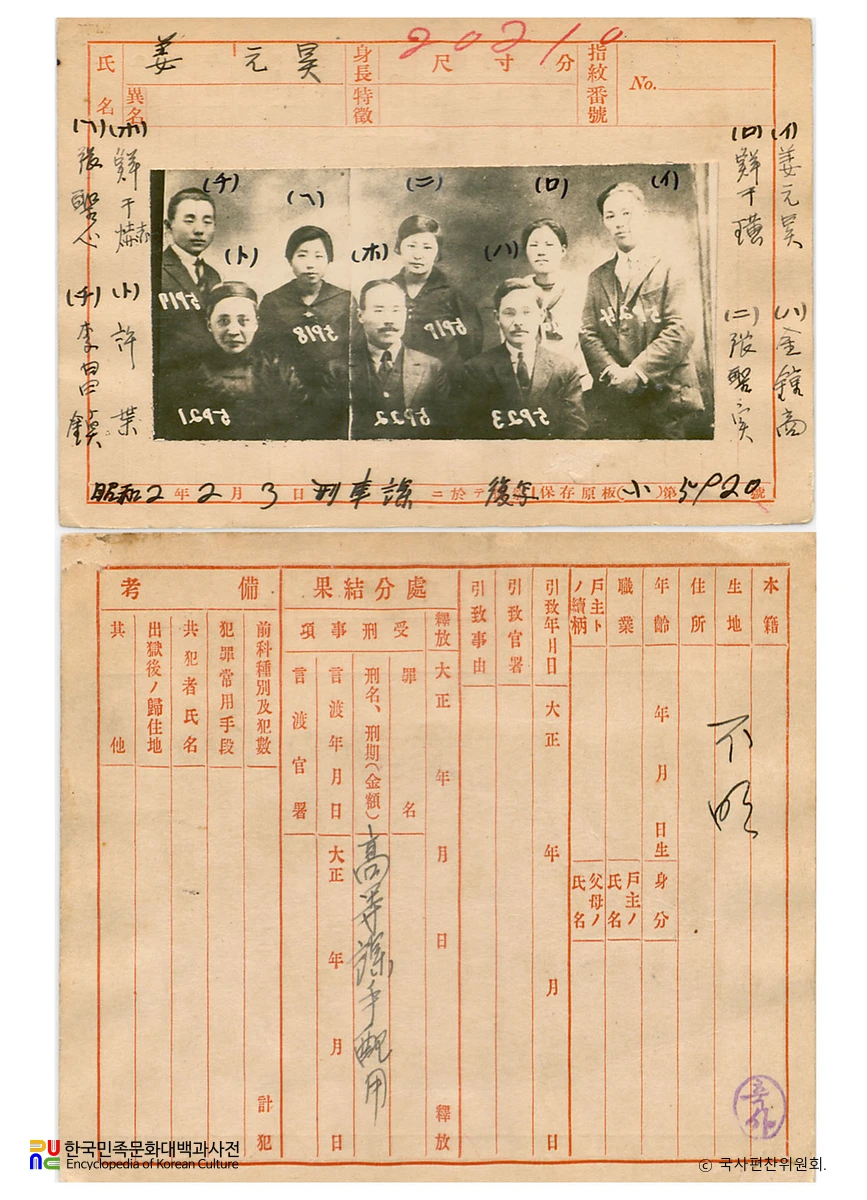 氏名 姜元昊
異名
身長 尺寸分
20210
特徵
指紋番號 No.
(イ) 姜元昊
(ロ) 鮮于璜
(ニ) 張聖实
(ホ) 鮮于燽
(ヘ) 張聖心
(ト) 許葉
(チ) 李昌鎮
(チ) (ヘ) (ニ) (ロ) (イ)
(ト) (ホ) (ハ)
5919 5918 5917
5921 5922 5923
昭和2年2月3日 刑事課ニ於テ複写 保存原板(小)第5920號
備考
處分結果
受刑事項
其他
出獄後ノ歸住地
共犯者氏名
犯罪常用手段
前科種別及犯數
計犯
言渡官署
言渡年月日 大正年月日
刑名、刑期(金額)
罪名
釋放 大正年月日 釋放
高等課手配用
引致事由
引致官署
引致年月日 大正年月日
戶主トノ續柄
職業
年齡 年月日生
住所
生地
本籍
不明
父母ノ氏名
戶主ノ氏名
身分
한국민족문화대백과사전
Encyclopedia of Korean Culture
ⓒ 국사편찬위원회.